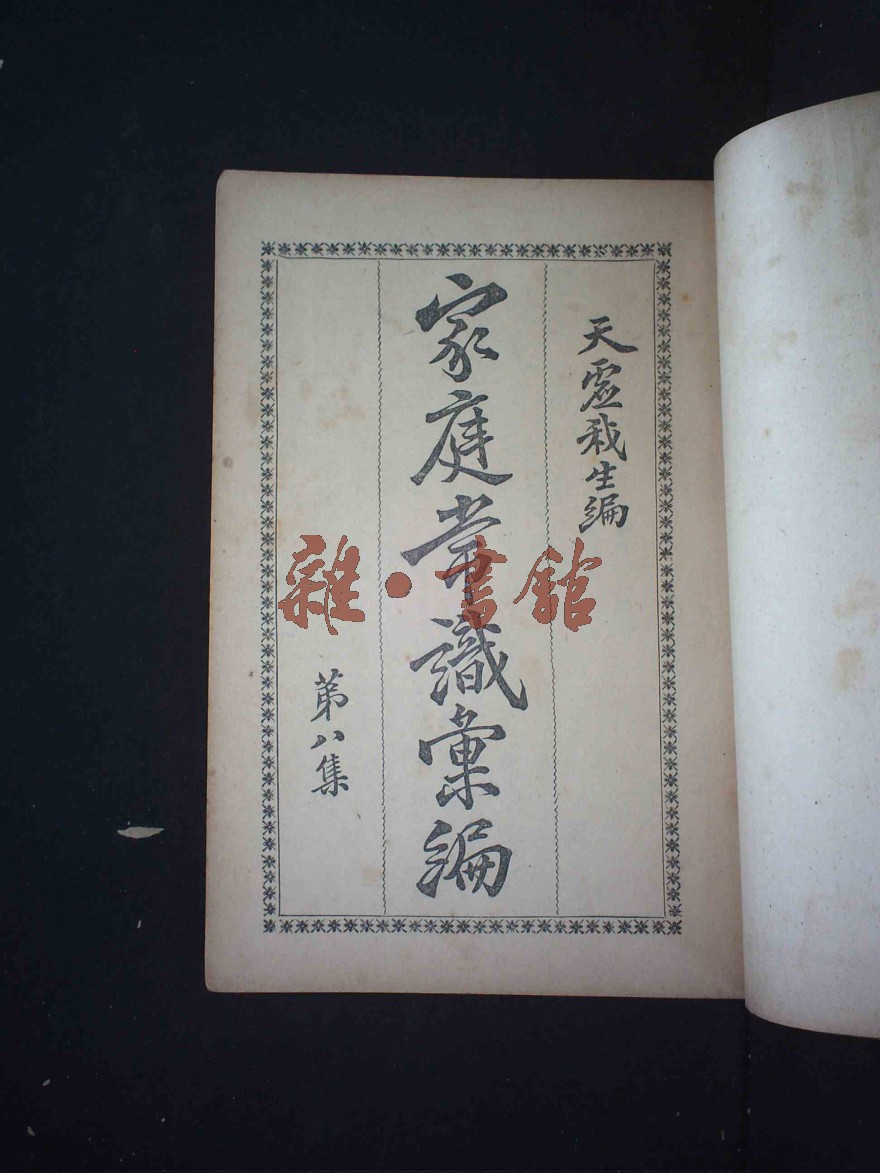 天虛我生編
家庭常識彙編
第八集
雜·書館